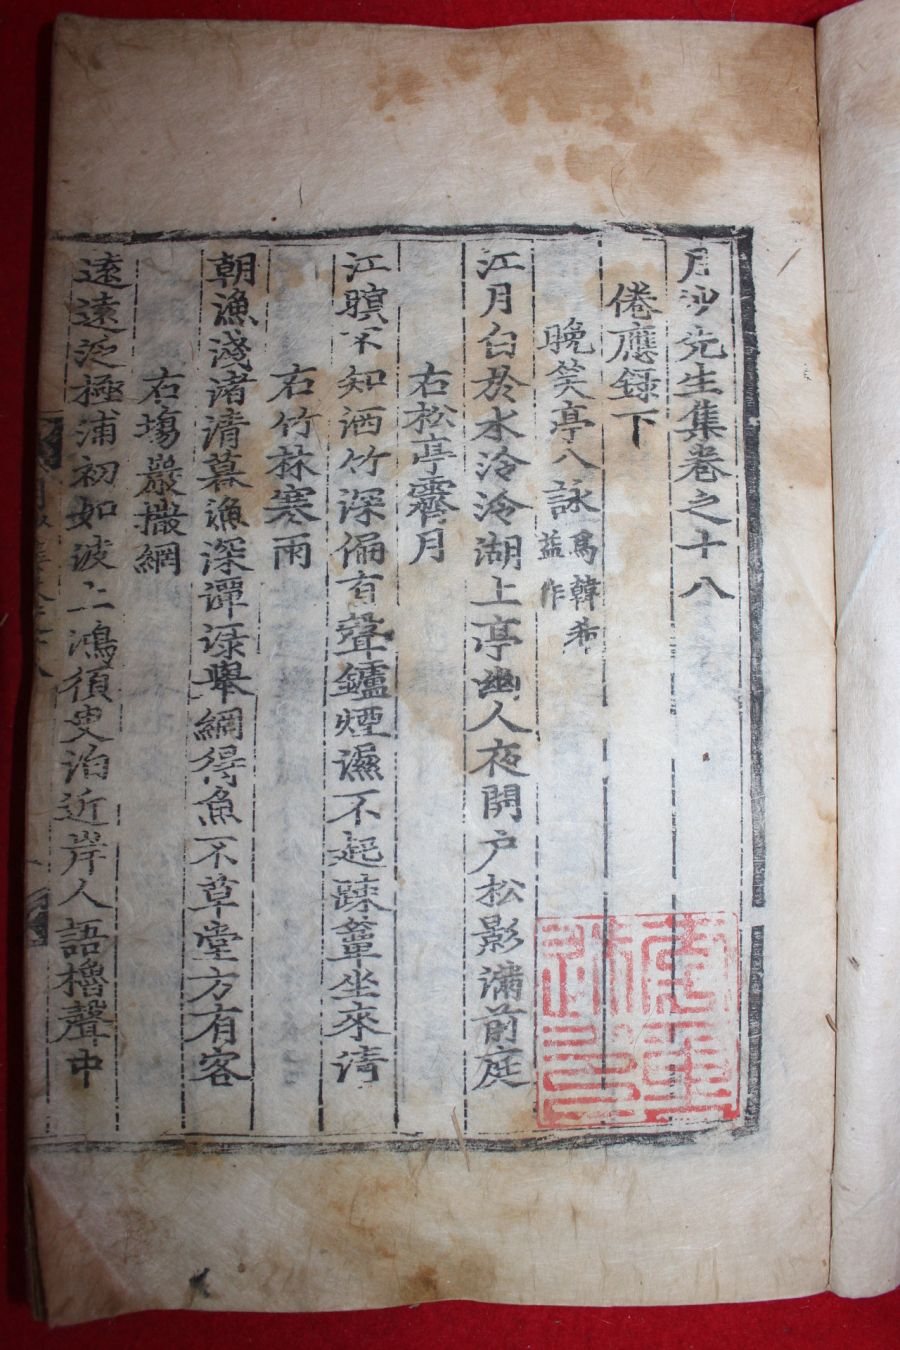 月沙先生集卷之十八
倦應錄下
晩笑亭八詠 爲韓希益作
江月白於水泠泠湖上亭幽人夜開户松影滿前庭
右松亭霽月
江暝不知洒竹深偏有聲鑪煙濕不起疎簟坐來淸
右竹林寒雨
朝漁淺渚清暮漁深潭渌擧網得魚不草堂方有客
右塲巖撒網
遠遠泛極浦初如波上鴻須臾泊近岸人語櫓聲中